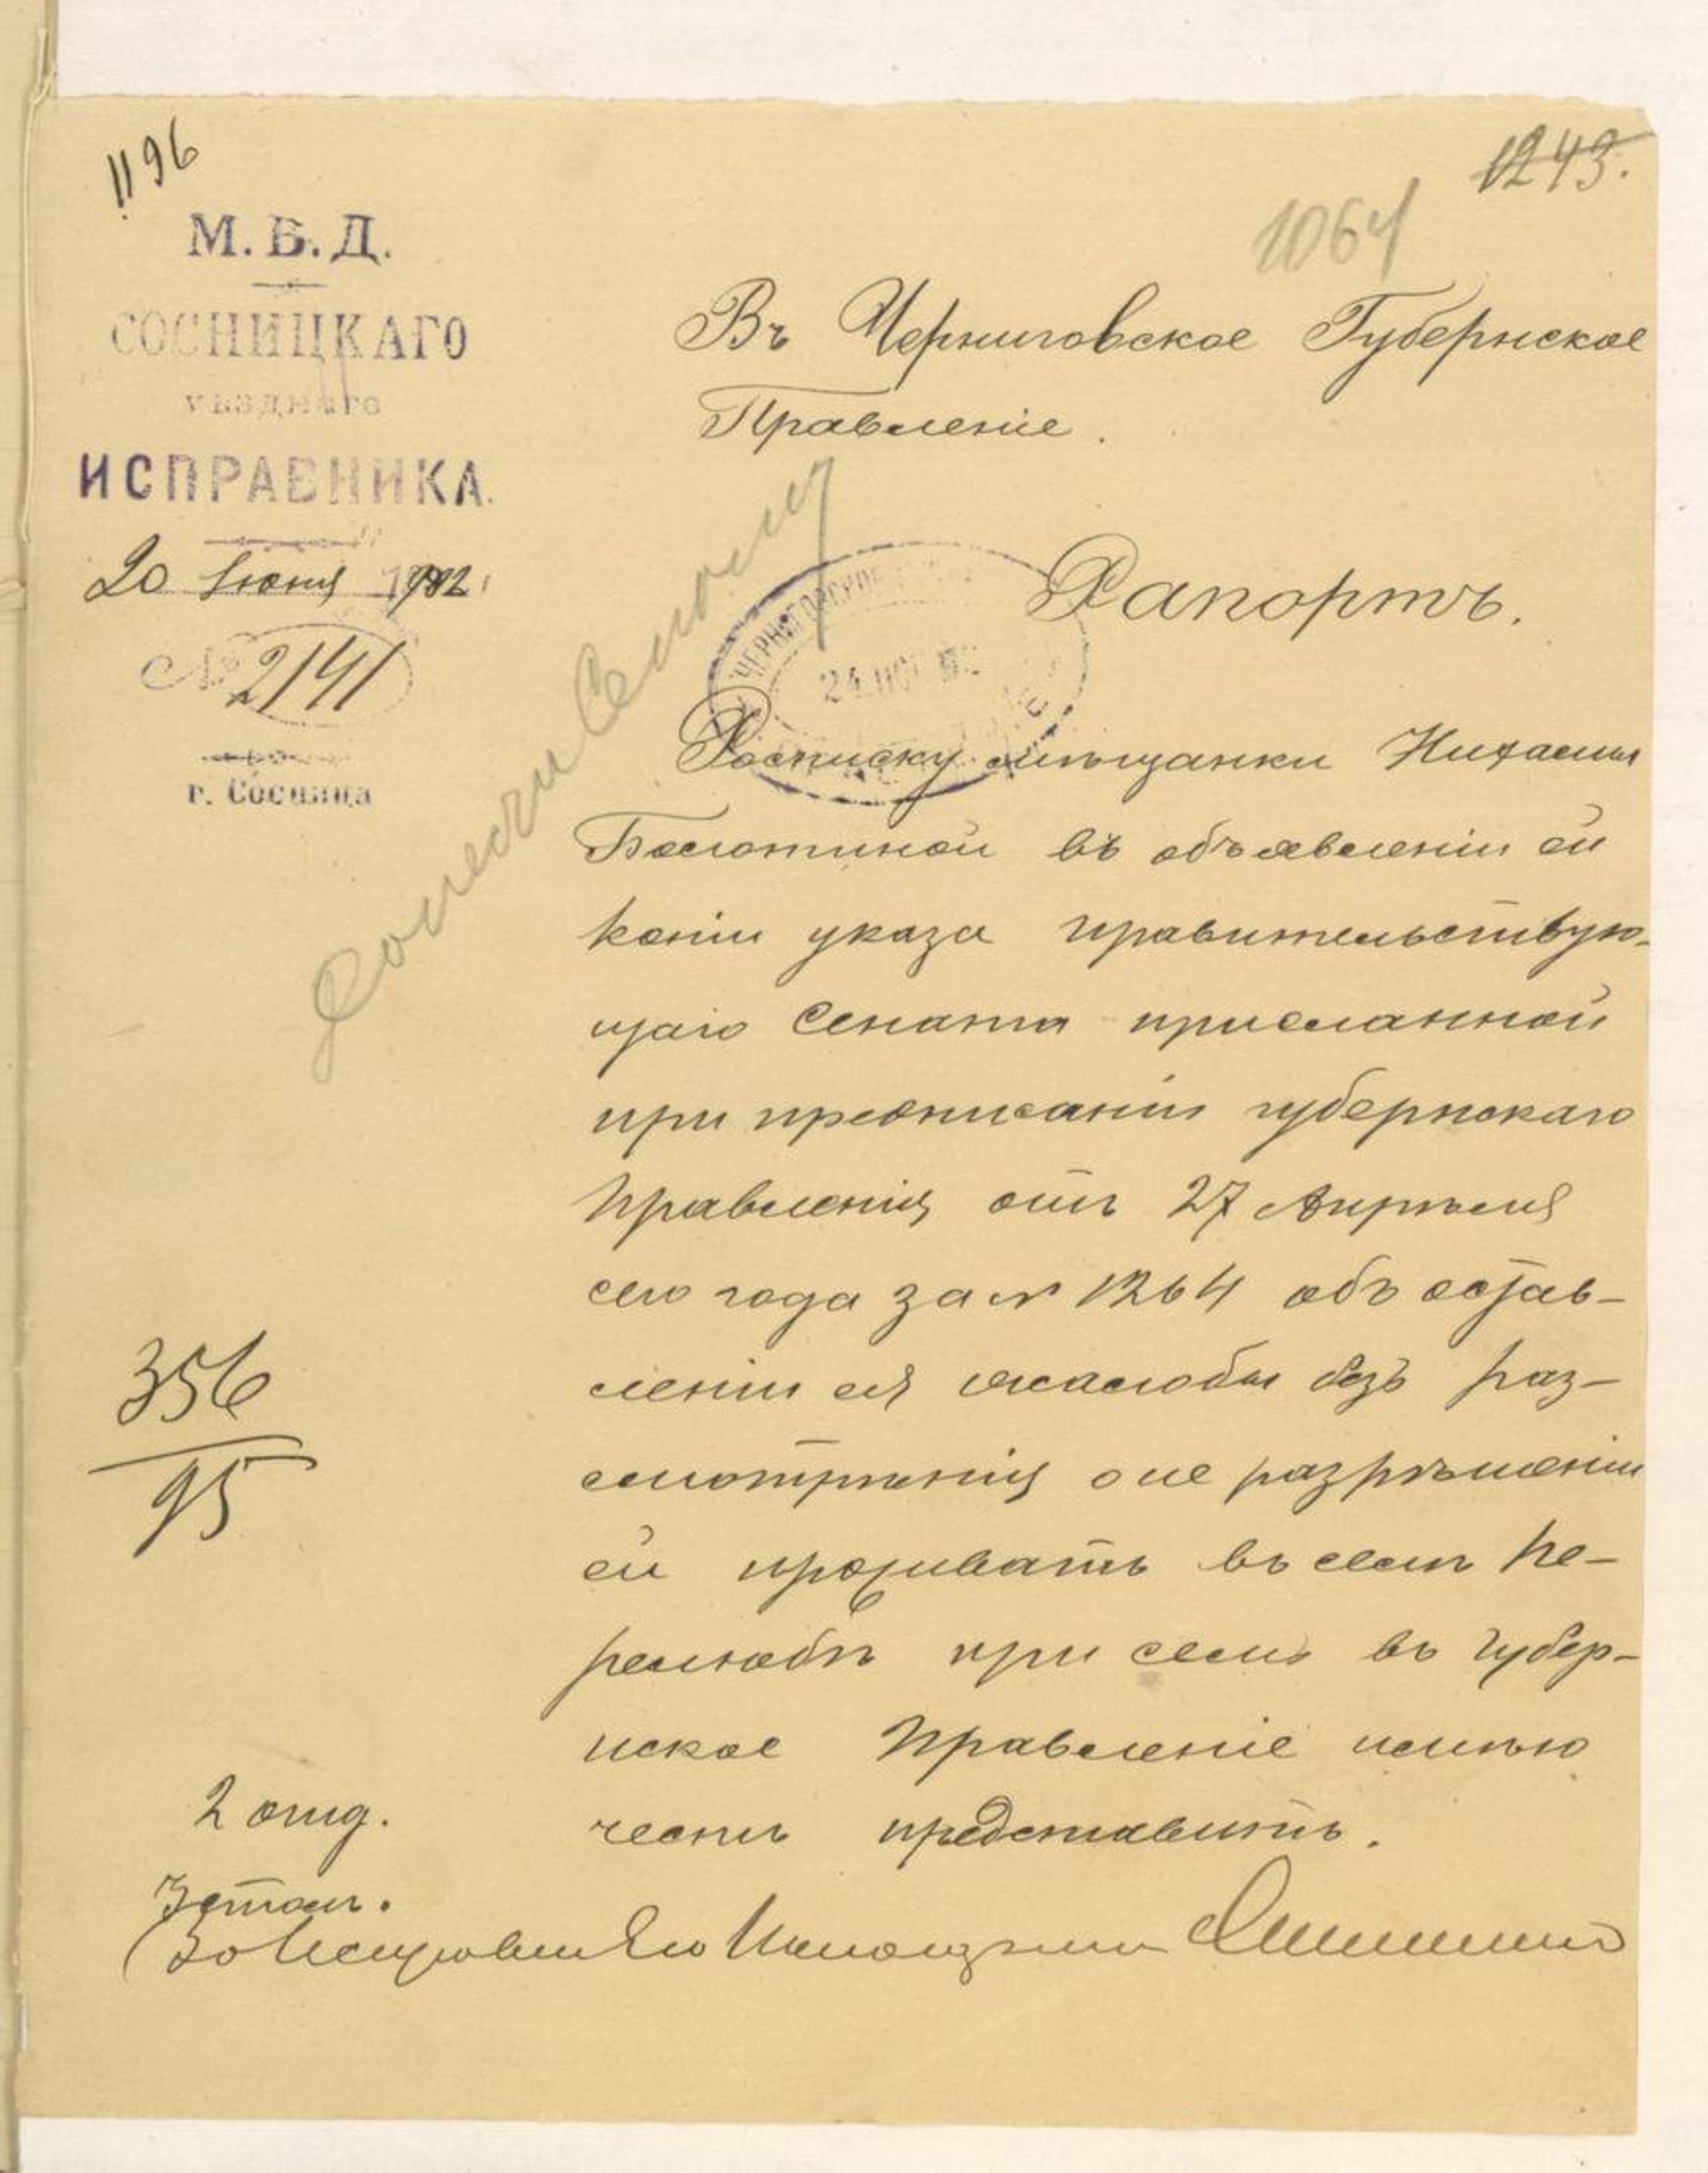 1196
1243.
1064
М. В. Д.
СОСНИЦКАГО
УѢЗДНАГО
ИСПРАВНИКА.
20 Іюня 1902
№ 2141
г. Сосница
Въ Черниговское Губернское
Правленіе.
Рапортъ.
ЧЕРНИГОВСКОЕ
24 ІЮН
Росписку мѣщанки Нихамы
Болотиной въ объявленіи ей
копіи указа правительствую-
щаго Сената присланной
при предписаніи губернскаго
Правленія отъ 27 Апрѣля
сего года за № 1264 объ остав-
леніи ея жалобы безъ раз-
смотрѣнія о не разрѣшеніи
ей проживать въ селѣ Пе-
релюбѣ при семъ въ Губер-
нское Правленіе имѣю
честь представить.
Донести Сенату
356
95
2 отд.
3 столъ.
За Исправника Его Помощникъ